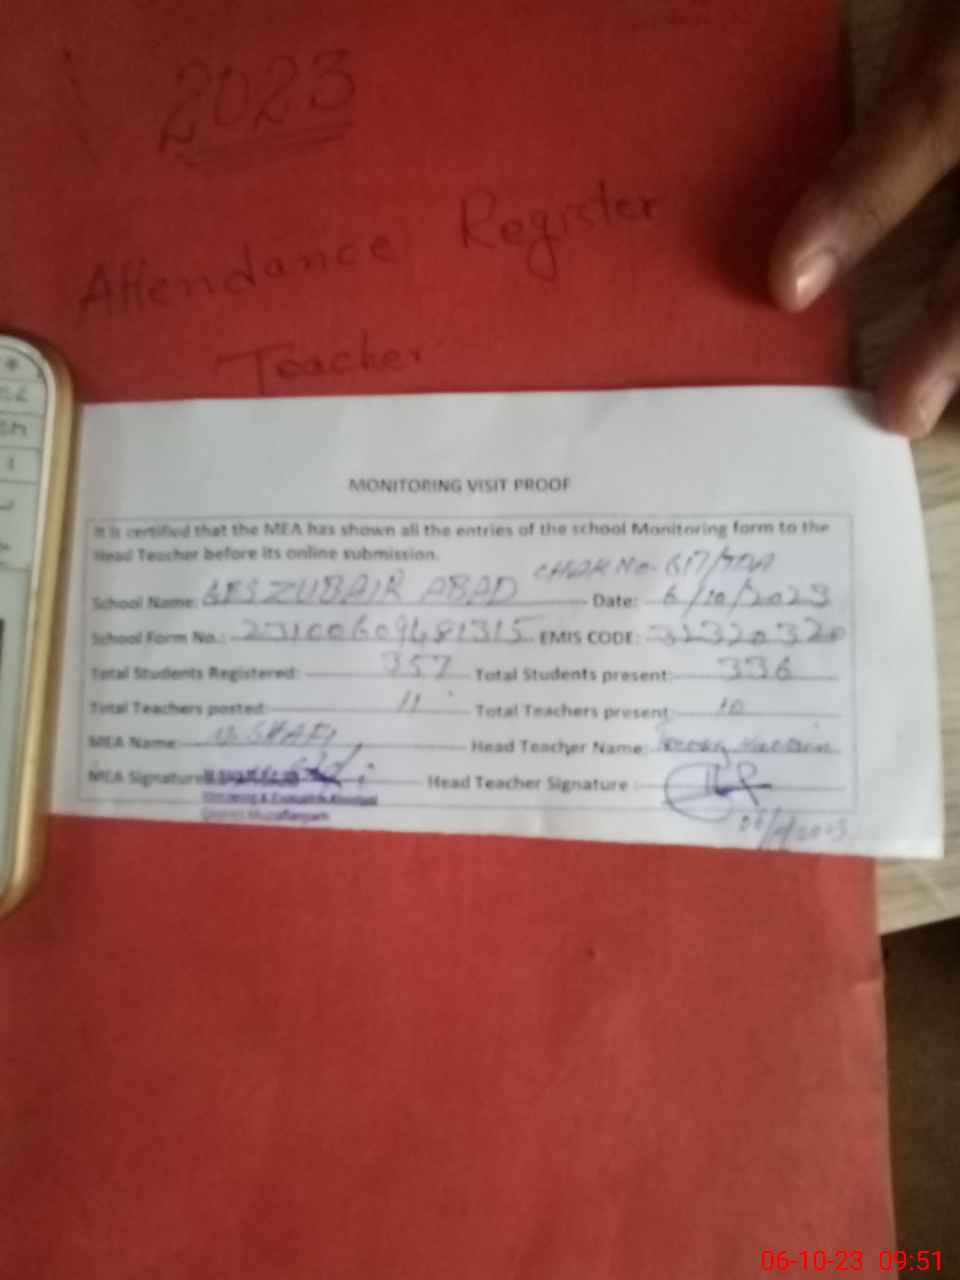 2023
Attendance Register
Teacher
MONITORING VISIT PROOF
It is certified that the MEA has shown all the entries of the school Monitoring form to the
Head Teacher before its online submission.
CHAK No. 617/TDA
School Name: GES ZUBAIR ABAD Date: 6/10/2023
School Form No.: 23100609481315 EMIS CODE: 32320320
Total Students Registered: 357 Total Students present: 336
Total Teachers posted: 11 Total Teachers present: 10
MEA Name: M. SHAFI Head Teacher Name: Hussain
MEA Signature Head Teacher Signature :
Monitoring & Evaluation Assistant
District Muzaffargarh
06/10/2023
06-10-23 09:51